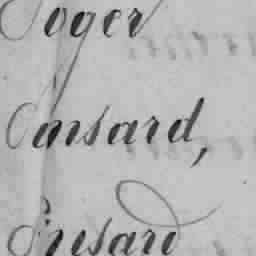 Soger
Cansard,
Susard